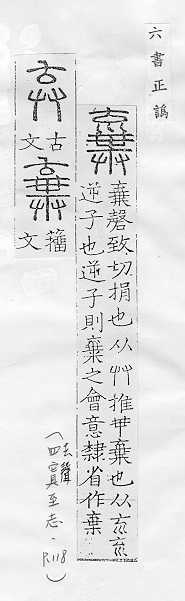 六書正譌
棄磬致切捐也从艸推𠦒棄也从𠫓𠫓
逆子也逆子則棄之會意隸省作棄
古文
籀文
(去聲四寘至志·P.118)